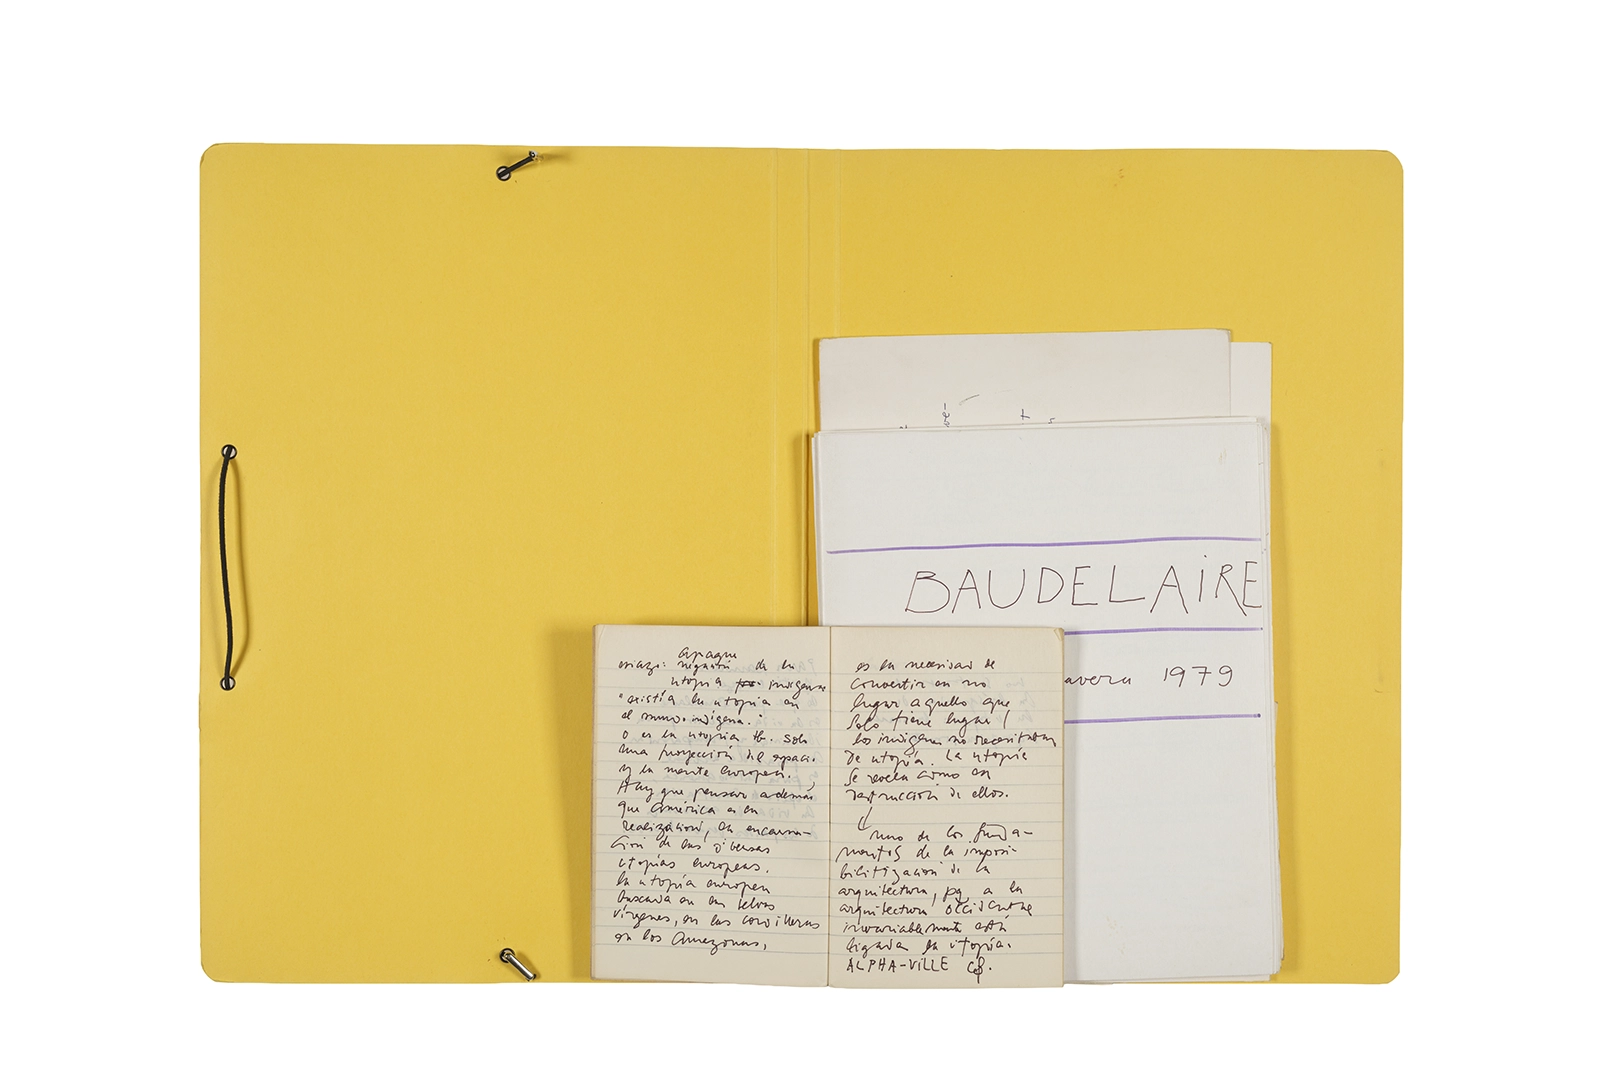 BAUDELAIRE
avera 1979
apague
negación de la
utopía indígena
"existía la utopía en
el mundo indígena."
o es la utopía tb. solo
una proyección del espacio
y la mente europea.
Hay que pensar además
que América es la
realización, la encarna-
ción de las diversas
utopías europeas.
la utopía europea
buscada en las selvas
vírgenes, en las cordilleras
en los Amazonas,
es la necesidad de
convertir en no
lugar aquello que
solo tiene lugar /
los indígenas no necesitaban
de utopía. La utopía
se revela como la
destrucción de ellos.
uno de los funda-
mentos de la imposi-
bilitización de la
arquitectura, pq. a la
arquitectura occidental
invariablemente está
ligada la utopía.
ALPHA-ViLLE cf.